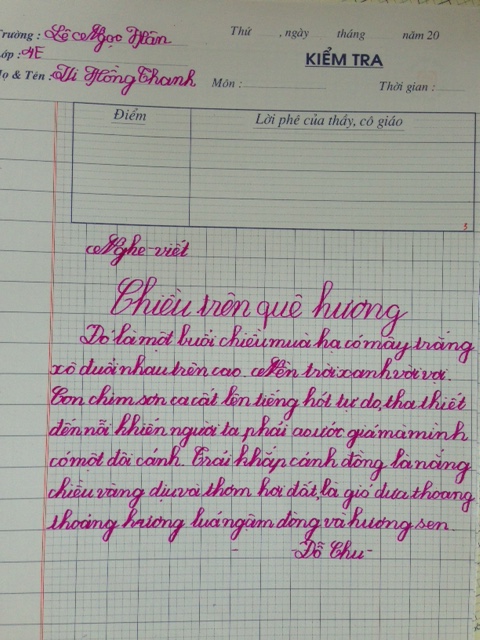 Trường : Lê Ngọc Hân
Lớp : 4E
Họ & Tên : Ti Hồng Thanh
Thứ ....., ngày ..... tháng ..... năm 20
KIỂM TRA
Môn : ..... Thời gian : .....
Điểm
Lời phê của thầy, cô giáo
Nghe-viết
Chiều trên quê hương
Đó là một buổi chiều mùa hạ có mây trắng
xô đuổi nhau trên cao. Nền trời xanh vời vợi.
Con chim sơn ca cất lên tiếng hót tự do, tha thiết
đến nỗi khiến người ta phải ao ước giá mà mình
có một đôi cánh. Trải khắp cánh đồng là nắng
chiều vàng dịu và thơm hơi đất, là gió đưa thoang
thoảng hương lúa ngậm đòng và hương sen.
- Đỗ Chu -